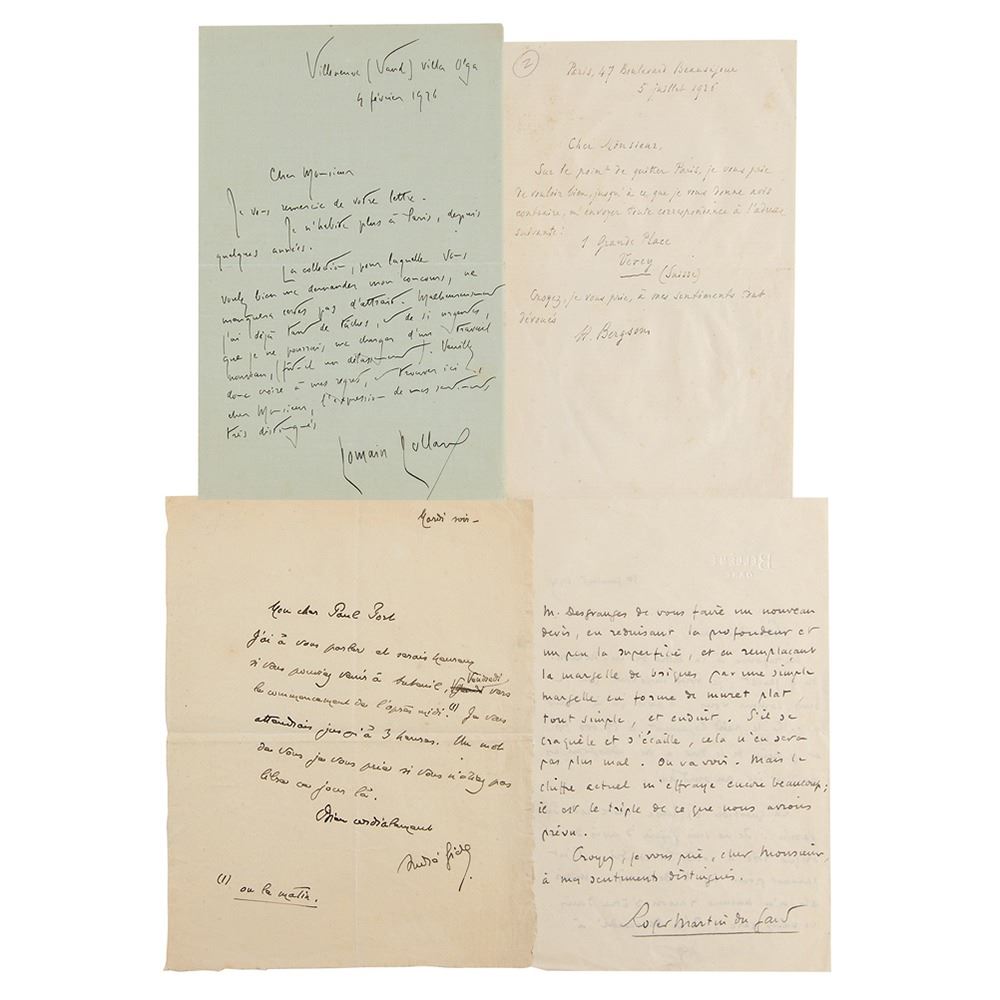 Villeneuve (Vaud) villa Olga
4 février 1926
Cher Monsieur
Je vous remercie de votre lettre.
Je n'habite plus à Paris, depuis
quelques années.
La collection, pour laquelle vous
voulez bien me demander mon concours, ne
manquera certes pas d'attrait. Malheureusement
j'ai déjà tant de tâches, et de si urgentes,
que je ne pourrais me charger d'un travail
nouveau, (fût-il un délassement). Veuillez
donc croire à mes regrets, et trouver ici,
cher Monsieur, l'expression de mes sentiments
très distingués
Romain Rolland
2
Paris, 47 Boulevard Beauséjour
5 juillet 1926
Cher Monsieur,
Sur le point de quitter Paris, je vous prie
de vouloir bien, jusqu'à ce que je vous donne avis
contraire, m'envoyer toute correspondance à l'adresse
suivante :
1 Grande Place
Vevey
(Suisse)
Croyez, je vous prie, à mes sentiments tout
dévoués
H. Bergson
Mardi soir –
Mon cher Paul Fort
J'ai à vous parler et serais heureux
si vous pouviez venir à Auteuil, Vendredi, vers
le commencement de l'après midi. (1) Je vous
attendrais jusqu'à 3 heures. Un mot
de vous je vous prie si vous n'étiez pas
libre ce jour là.
Bien cordialement
André Gide
(1) ou le matin.
BELLÊME
ORNE
M. Desgranges de vous faire un nouveau
devis, en réduisant la profondeur et
un peu la superficie, et en remplaçant
la margelle de briques par une simple
margelle en forme de muret plat,
tout simple, et enduit. S'il se
craquèle et s'écaille, cela n'en sera
pas plus mal. On va voir. Mais le
chiffre actuel m'effraye encore beaucoup ;
il est le triple de ce que nous avions
prévu.
Croyez, je vous prie, cher Monsieur,
à mes sentiments distingués.
Roger Martin du Gard